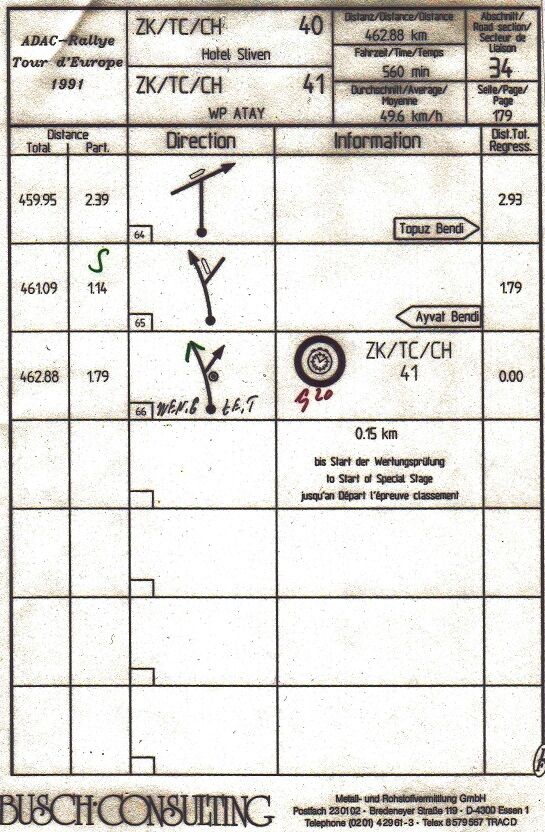 ADAC-Rallye
Tour d'Europe
1991
ZK/TC/CH 40
Hotel Sliven
ZK/TC/CH 41
WP ATAY
Distanz/Distance/Distance
462.88 km
Fahrzeit/Time/Temps
560 min
Durchschnitt/Average/
Moyenne
49.6 km/h
Abschnitt/
Road section/
Secteur de
Liaison
34
Seite/Page/
Page
179
Distance
Total Part.
Direction
Information
Dist.Tot.
Regress.
459.95 2.39 2.93
64
Topuz Bendi
S
461.09 1.14 1.79
65
Ayvat Bendi
462.88 1.79 0.00
66
ZK/TC/CH
41
0.15 km
bis Start der Wertungsprüfung
to Start of Special Stage
jusqu'an Départ l'épreuve classement
BUSCH·CONSULTING
Metall- und Rohstoffvermittlung GmbH
Postfach 230102 · Bredeneyer Straße 119 · D-4300 Essen 1
Telephone (0201) 42961-3 · Telex 8579567 TRAC D